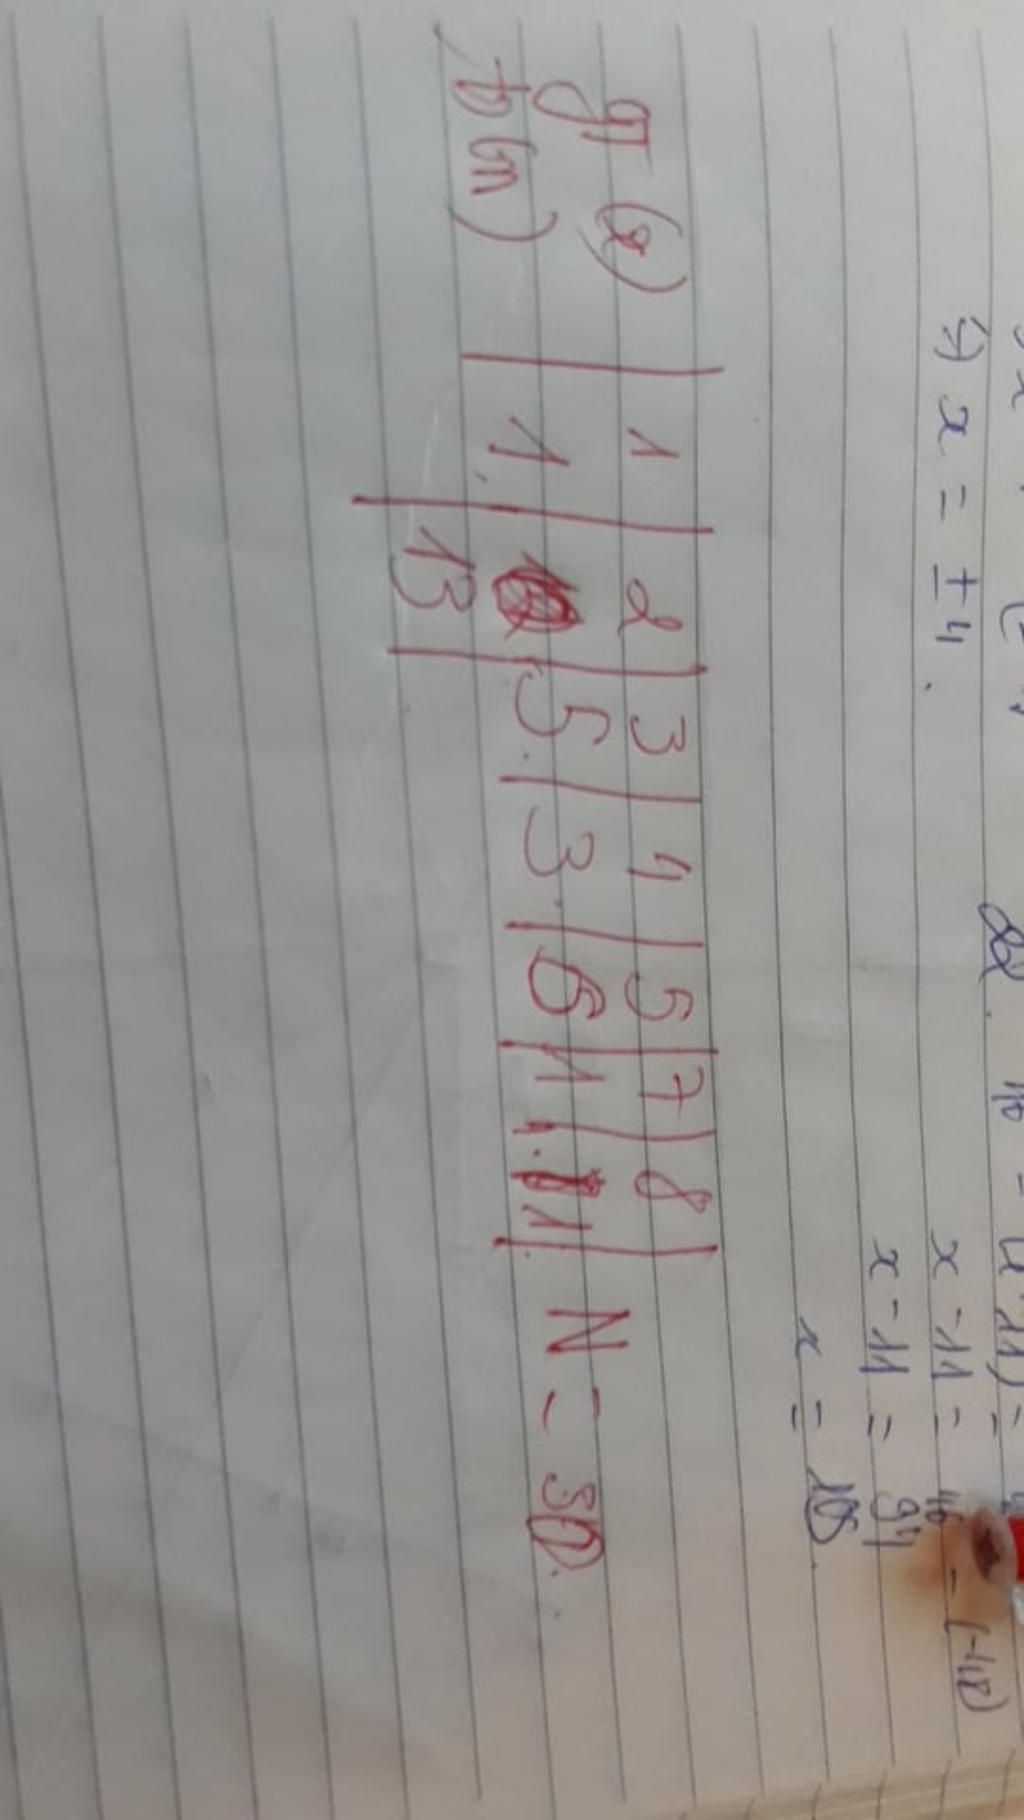 =) x = ±4.
x - 11 =
x - 11 = 94
x = 105.
gT (x) | 1 | 2 | 3 | 4 | 5 | 7 | 8 |
ts (n) | 1 | 13 | 5 | 3 | 6 | 1 | 1 | N = 30.